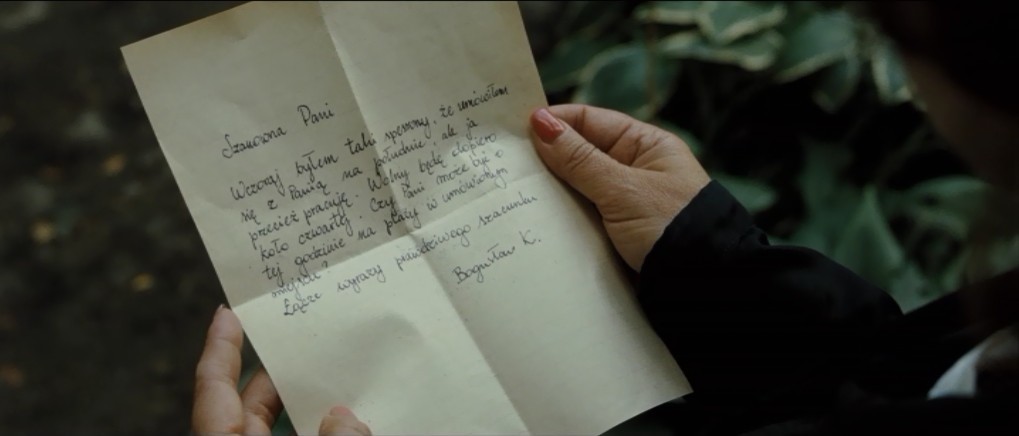 Szanowna Pani
Wczoraj byłem taki spemny, że umówiłem
się z Panią na południe, ale ja
przecież pracuję. Wolny będę dopiero
koło czwartej. Czy Pani może być o
tej godzinie na plaży w umówionym
miejscu?
Łączę wyrazy prawdziwego szacunku
Bogusław K.